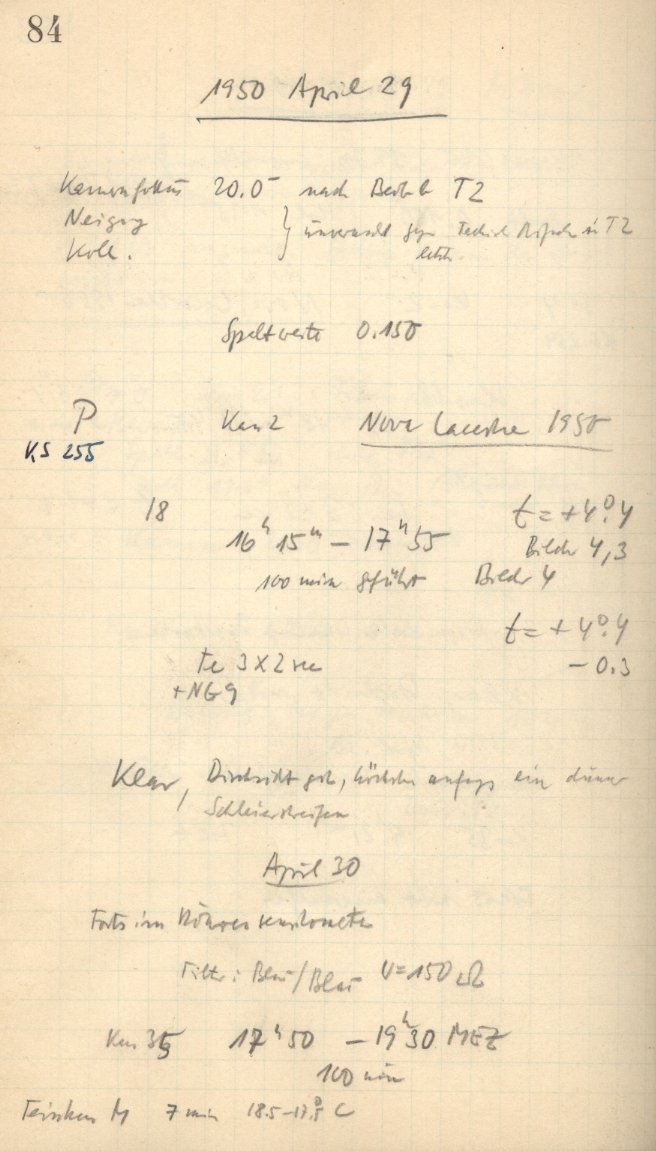 84
1950 April 29
Kamerafokus 20.0 nach Beob b T2
Neigung } unverändert gegen in T2
Koll. letzte.
Spaltweite 0.150
P Kam 2 Nova Lacertae 1950
KS 255
18 t = +4°.4
16h 15m – 17h 55 Bilder 4,3
100 min geführt Bilder 4
t = +4°.4
te 3 x 2 sec – 0.3
+NG 9
Klar, Durchsicht gut, höchstens anfangs ein dünner
Schleierstreifen
April 30
Forts im Röhrensensitometer
Filter: Blau/Blau V=150 Ω
Kas 35 17h 50 – 19h 30 MEZ
100 min
M 7 min 18.5–17.5° C